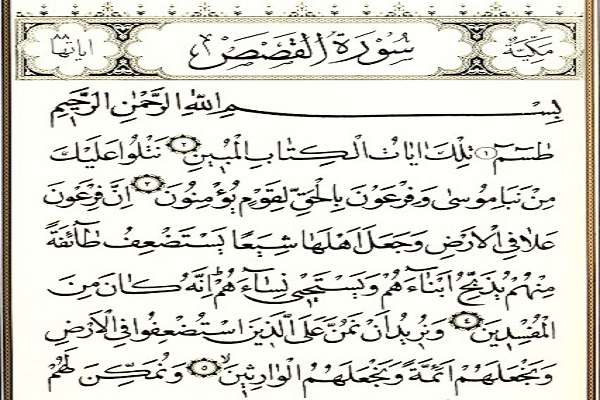 مكية سورة القصص اياتها ٨٨
بِسْمِ اللّٰهِ الرَّحْمٰنِ الرَّحِيمِ
طٰسٓمٓ ١ تِلْكَ اٰيَاتُ الْكِتَابِ الْمُبِينِ ٢ نَتْلُوا عَلَيْكَ
مِنْ نَبَأِ مُوسٰى وَفِرْعَوْنَ بِالْحَقِّ لِقَوْمٍ يُؤْمِنُونَ ٣ اِنَّ فِرْعَوْنَ
عَلَا فِي الْاَرْضِ وَجَعَلَ اَهْلَهَا شِيَعًا يَسْتَضْعِفُ طَٓائِفَةً
مِنْهُمْ يُذَبِّحُ اَبْنَٓاءَهُمْ وَيَسْتَحْيٖ نِسَٓاءَهُمْ اِنَّهُ كَانَ مِنَ
الْمُفْسِدِينَ ٤ وَنُرِيدُ اَنْ نَمُنَّ عَلَى الَّذِينَ اسْتُضْعِفُوا فِي الْاَرْضِ
وَنَجْعَلَهُمْ اَئِمَّةً وَنَجْعَلَهُمُ الْوَارِثِينَ ٥ وَنُمَكِّنَ لَهُمْ